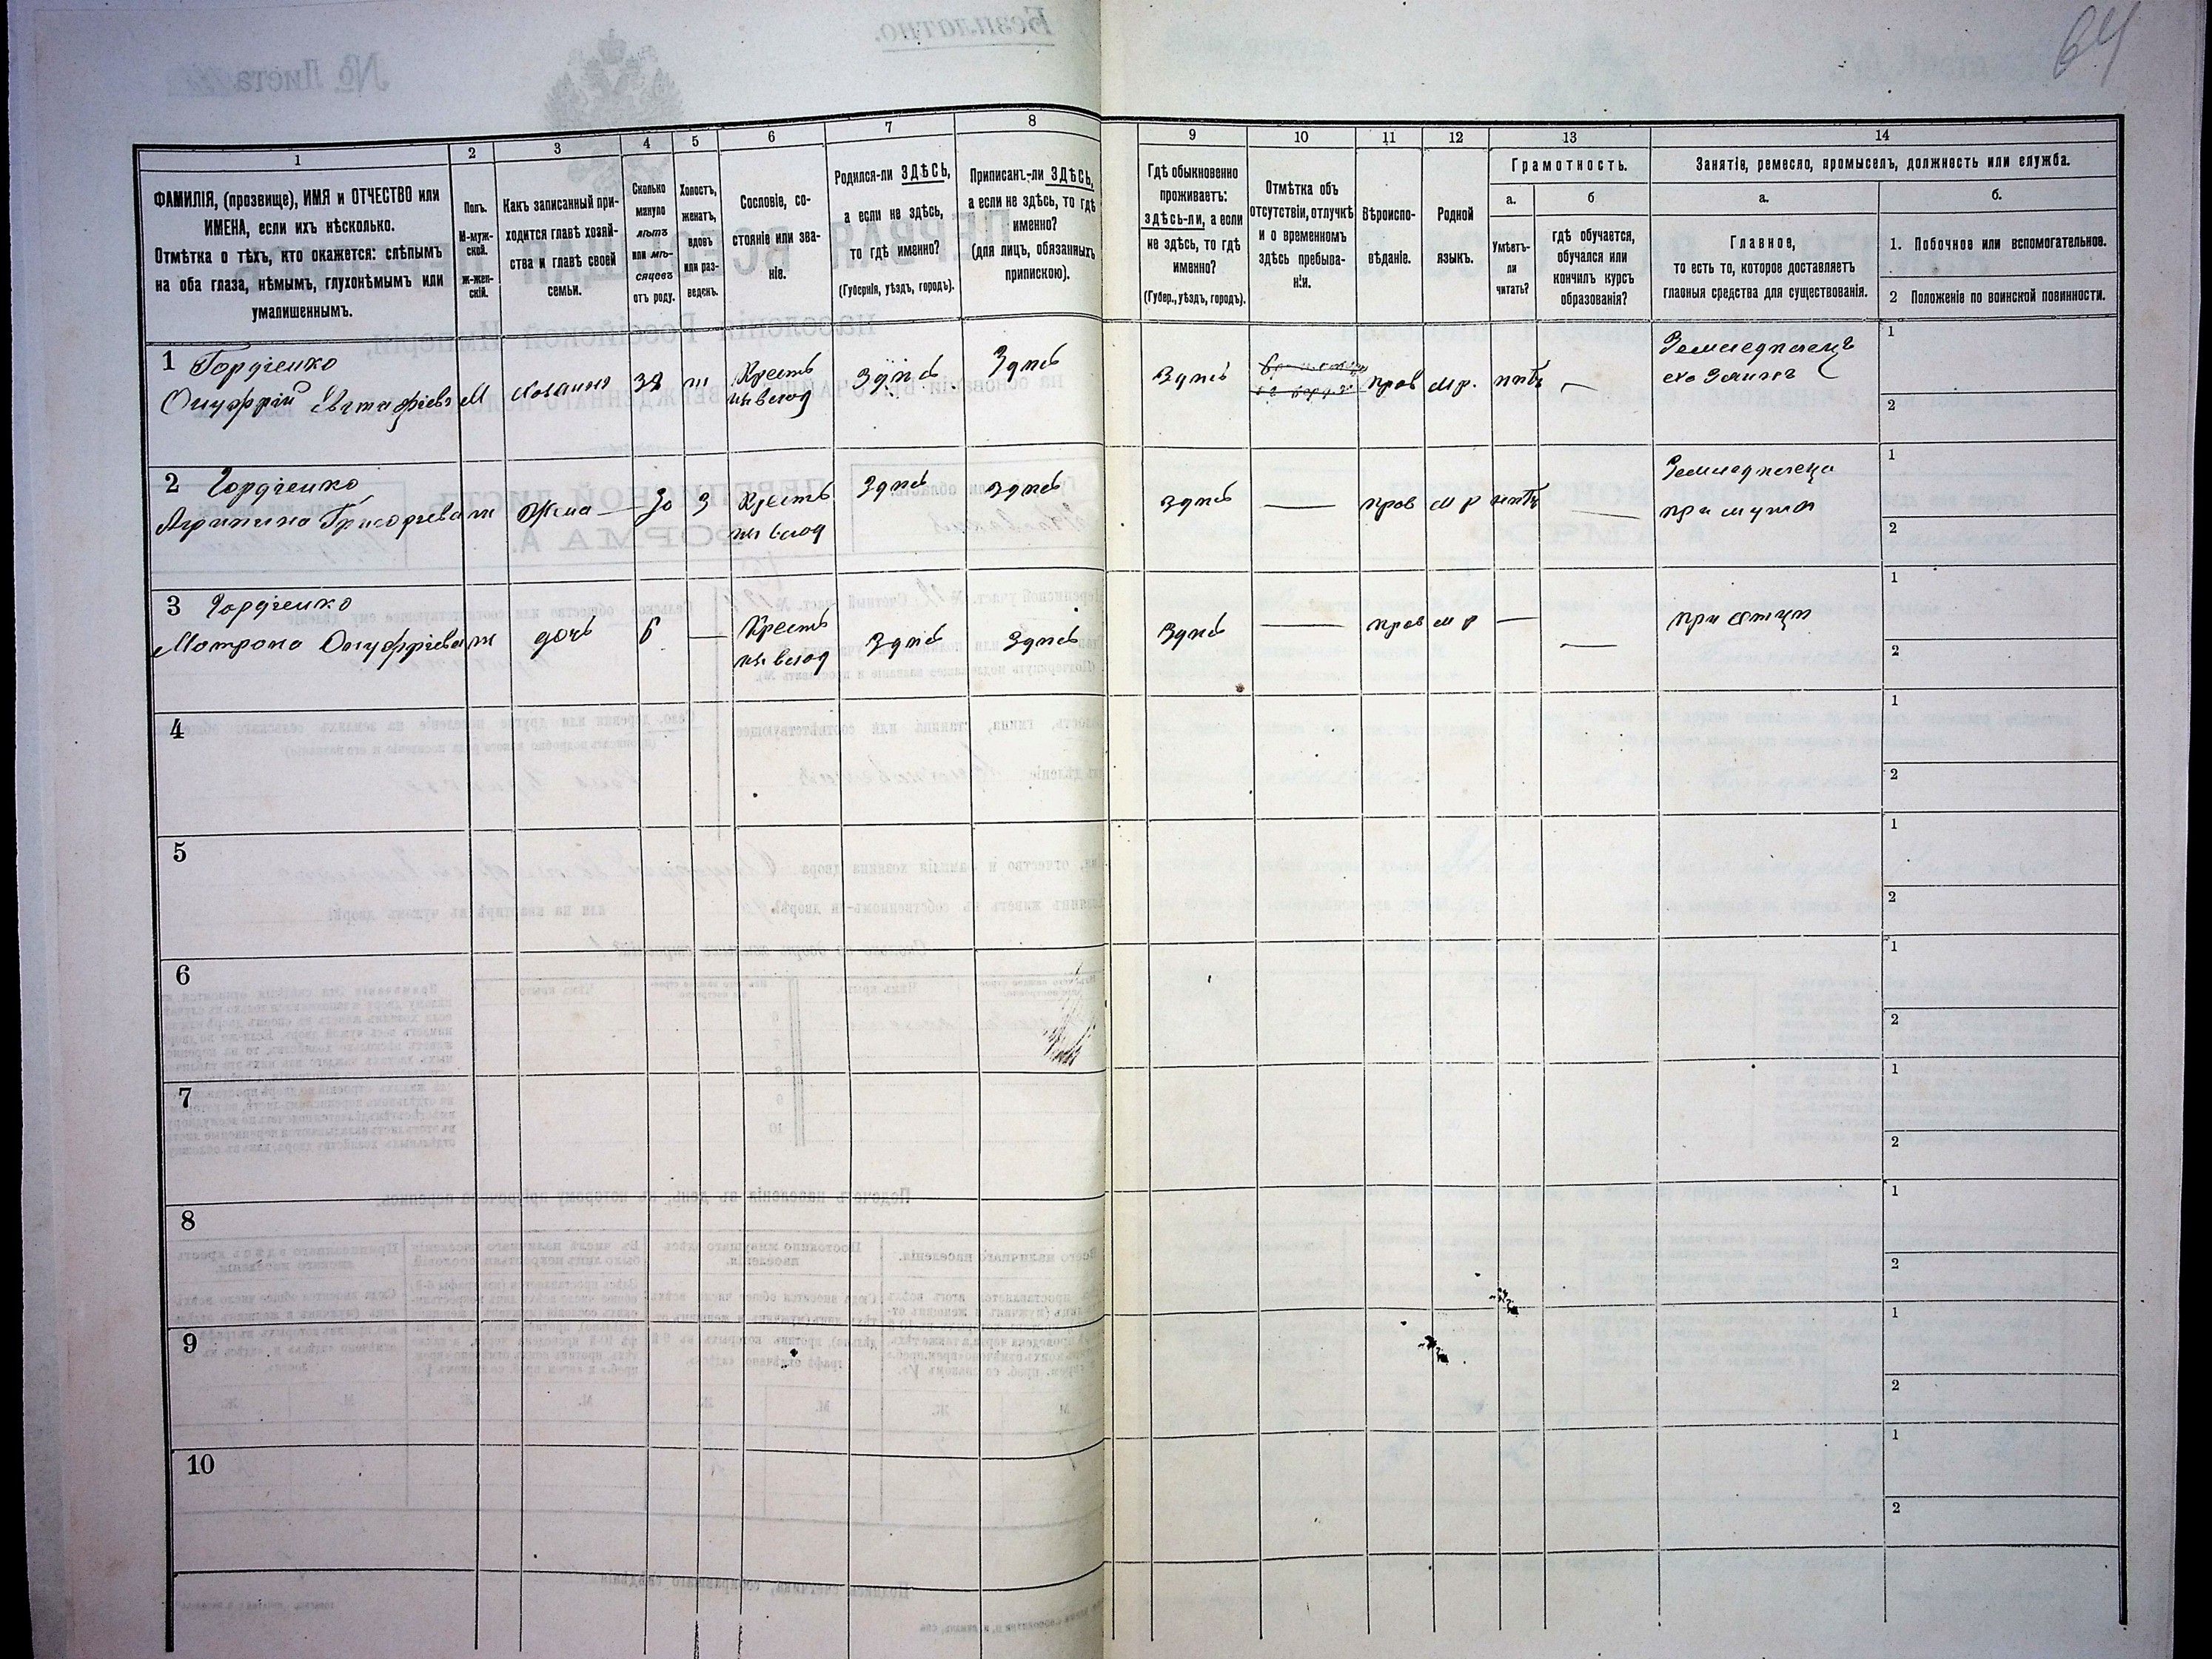 64
1
2
3
4
5
6
7
8
9
10
11
12
13
14
ФАМИЛІЯ, (прозвище), ИМЯ и ОТЧЕСТВО или
ИМЕНА, если ихъ нѣсколько.
Отмѣтка о тѣхъ, кто окажется: слѣпымъ
на оба глаза, нѣмымъ, глухонѣмымъ или
умалишеннымъ.
Полъ.
М-муж-
ской.
Ж-жен-
скій.
Какъ записанный при-
ходится главѣ хозяй-
ства и главѣ своей
семьи.
Сколько
минуло
лѣтъ
или мѣ-
сяцевъ
отъ роду.
Холостъ,
женатъ,
вдовъ
или раз-
веденъ.
Сословіе, со-
стояніе или зва-
ніе.
Родился-ли ЗДѢСЬ,
а если не здѣсь,
то гдѣ именно?
(Губернія, уѣздъ, городъ).
Приписанъ-ли ЗДѢСЬ,
а если не здѣсь, то гдѣ
именно?
(для лицъ, обязанныхъ
припискою).
Гдѣ обыкновенно
проживаетъ:
здѣсь-ли, а если
не здѣсь, то гдѣ
именно?
(Губер., уѣздъ, городъ).
Отмѣтка объ
отсутствіи, отлучкѣ
и о временномъ
здѣсь пребыва-
ніи.
Вѣроиспо-
вѣданіе.
Родной
языкъ.
Грамотность.
а.
Умѣетъ-
ли
читать?
б
гдѣ обучается,
обучался или
кончилъ курсъ
образованія?
Занятіе, ремесло, промыселъ, должность или служба.
а.
Главное,
то есть то, которое доставляетъ
главныя средства для существованія.
б.
1. Побочное или вспомогательное.
2 Положеніе по воинской повинности.
1 Гордіенко
Онуфрій Евстафіевъ
М
хозяинъ
ж
Кресть
Здѣсь
Здѣсь
Здѣсь
прав
мр.
нѣтъ
—
Земледѣлецъ
хозяинъ
1
2
2 Гордіенко
Агрипина Григорьева
ж
жена
30
З
Кресть
Здѣсь
Здѣсь
Здѣсь
—
прав
м р
нѣтъ
—
Земледѣлеца
при мужѣ
1
2
3 Гордіенко
Матрона Онуфріева
ж
дочь
6
—
Кресть
Здѣсь
Здѣсь
Здѣсь
—
прав
м р
—
—
при отцѣ
1
2
4
1
2
5
1
2
6
1
2
7
1
2
8
1
2
9
1
2
10
1
2